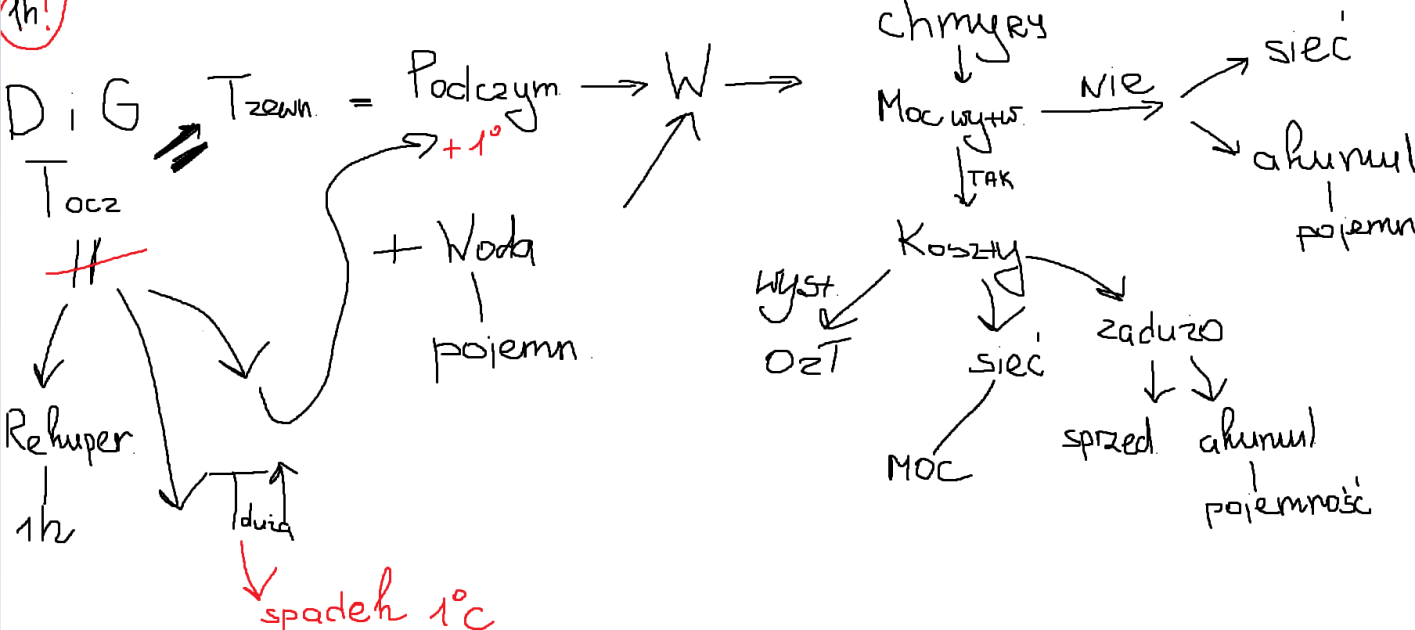 1h!
DiG
Tocz
Tzewn. = Podczym → W →
+1°
+ Woda
pojemn.
Rekuper.
1h
Tduża
spadek 1°C
chmyry
Moc wytw.
NIE
sieć
akumul
pojemn
TAK
Koszty
wyst.
OZT
sieć
MOC
zadużo
sprzed.
akumul
pojemność